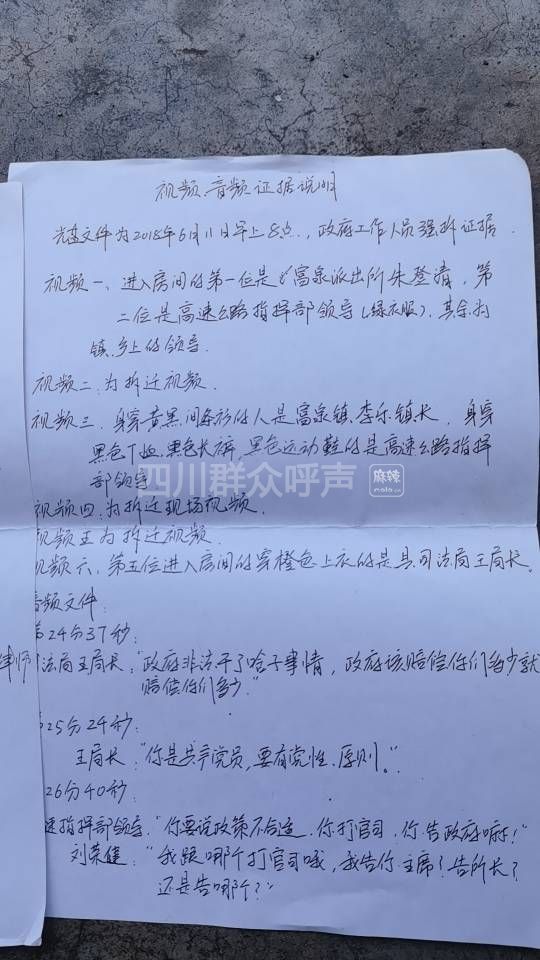 视频、音频证据说明
光盘文件为2018年6月11日早上8点.，政府工作人员强拆证据.
视频一、进入房间的第一位是富泉派出所朱登清，第
二位是高速公路指挥部领导(绿衣服)，其余为
镇、乡上的领导.
视频二.为拆迁视频.
视频三.身穿黄黑间条衫的人是富泉镇.李乐镇长，身穿
黑色T恤.黑色长裤，黑色运动鞋的是高速公路指挥
部领导
四川群众呼声
麻辣
mala.cn
视频四.为拆迁现场视频.
视频五为拆迁视频.
视频六、第五位进入房间的穿橙色上衣的是县司法局王局长。
音频文件:
24分37秒:
律师 法局王局长:"政府非法干了啥子事情，政府该赔偿你们多少就
赔偿你们多少."
25分24秒:
王局长:"你是共产党员,要有党性、原则。"
26分40秒:
指挥部领导:"你要说政策不合适.你打官司，你告政府嘛!"
刘荣健:"我跟哪个打官司哦，我告你主席?告所长?
还是告哪个?"